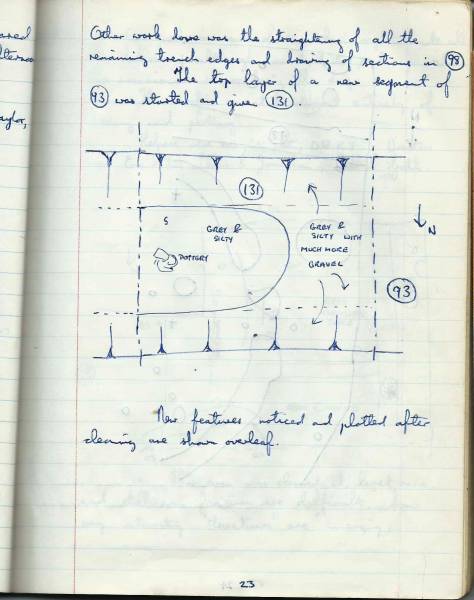 ared
Other work done was the straightening of all the
remaining trench edges and drawing of sections in 98
The top layer of a new segment of
93 was started and given 131.
aylor,
131
S
GREY &
SILTY
GREY &
SILTY WITH
MUCH MORE
GRAVEL
POTTERY
N
93
New features noticed and plotted after
cleaning are shown overleaf.
23